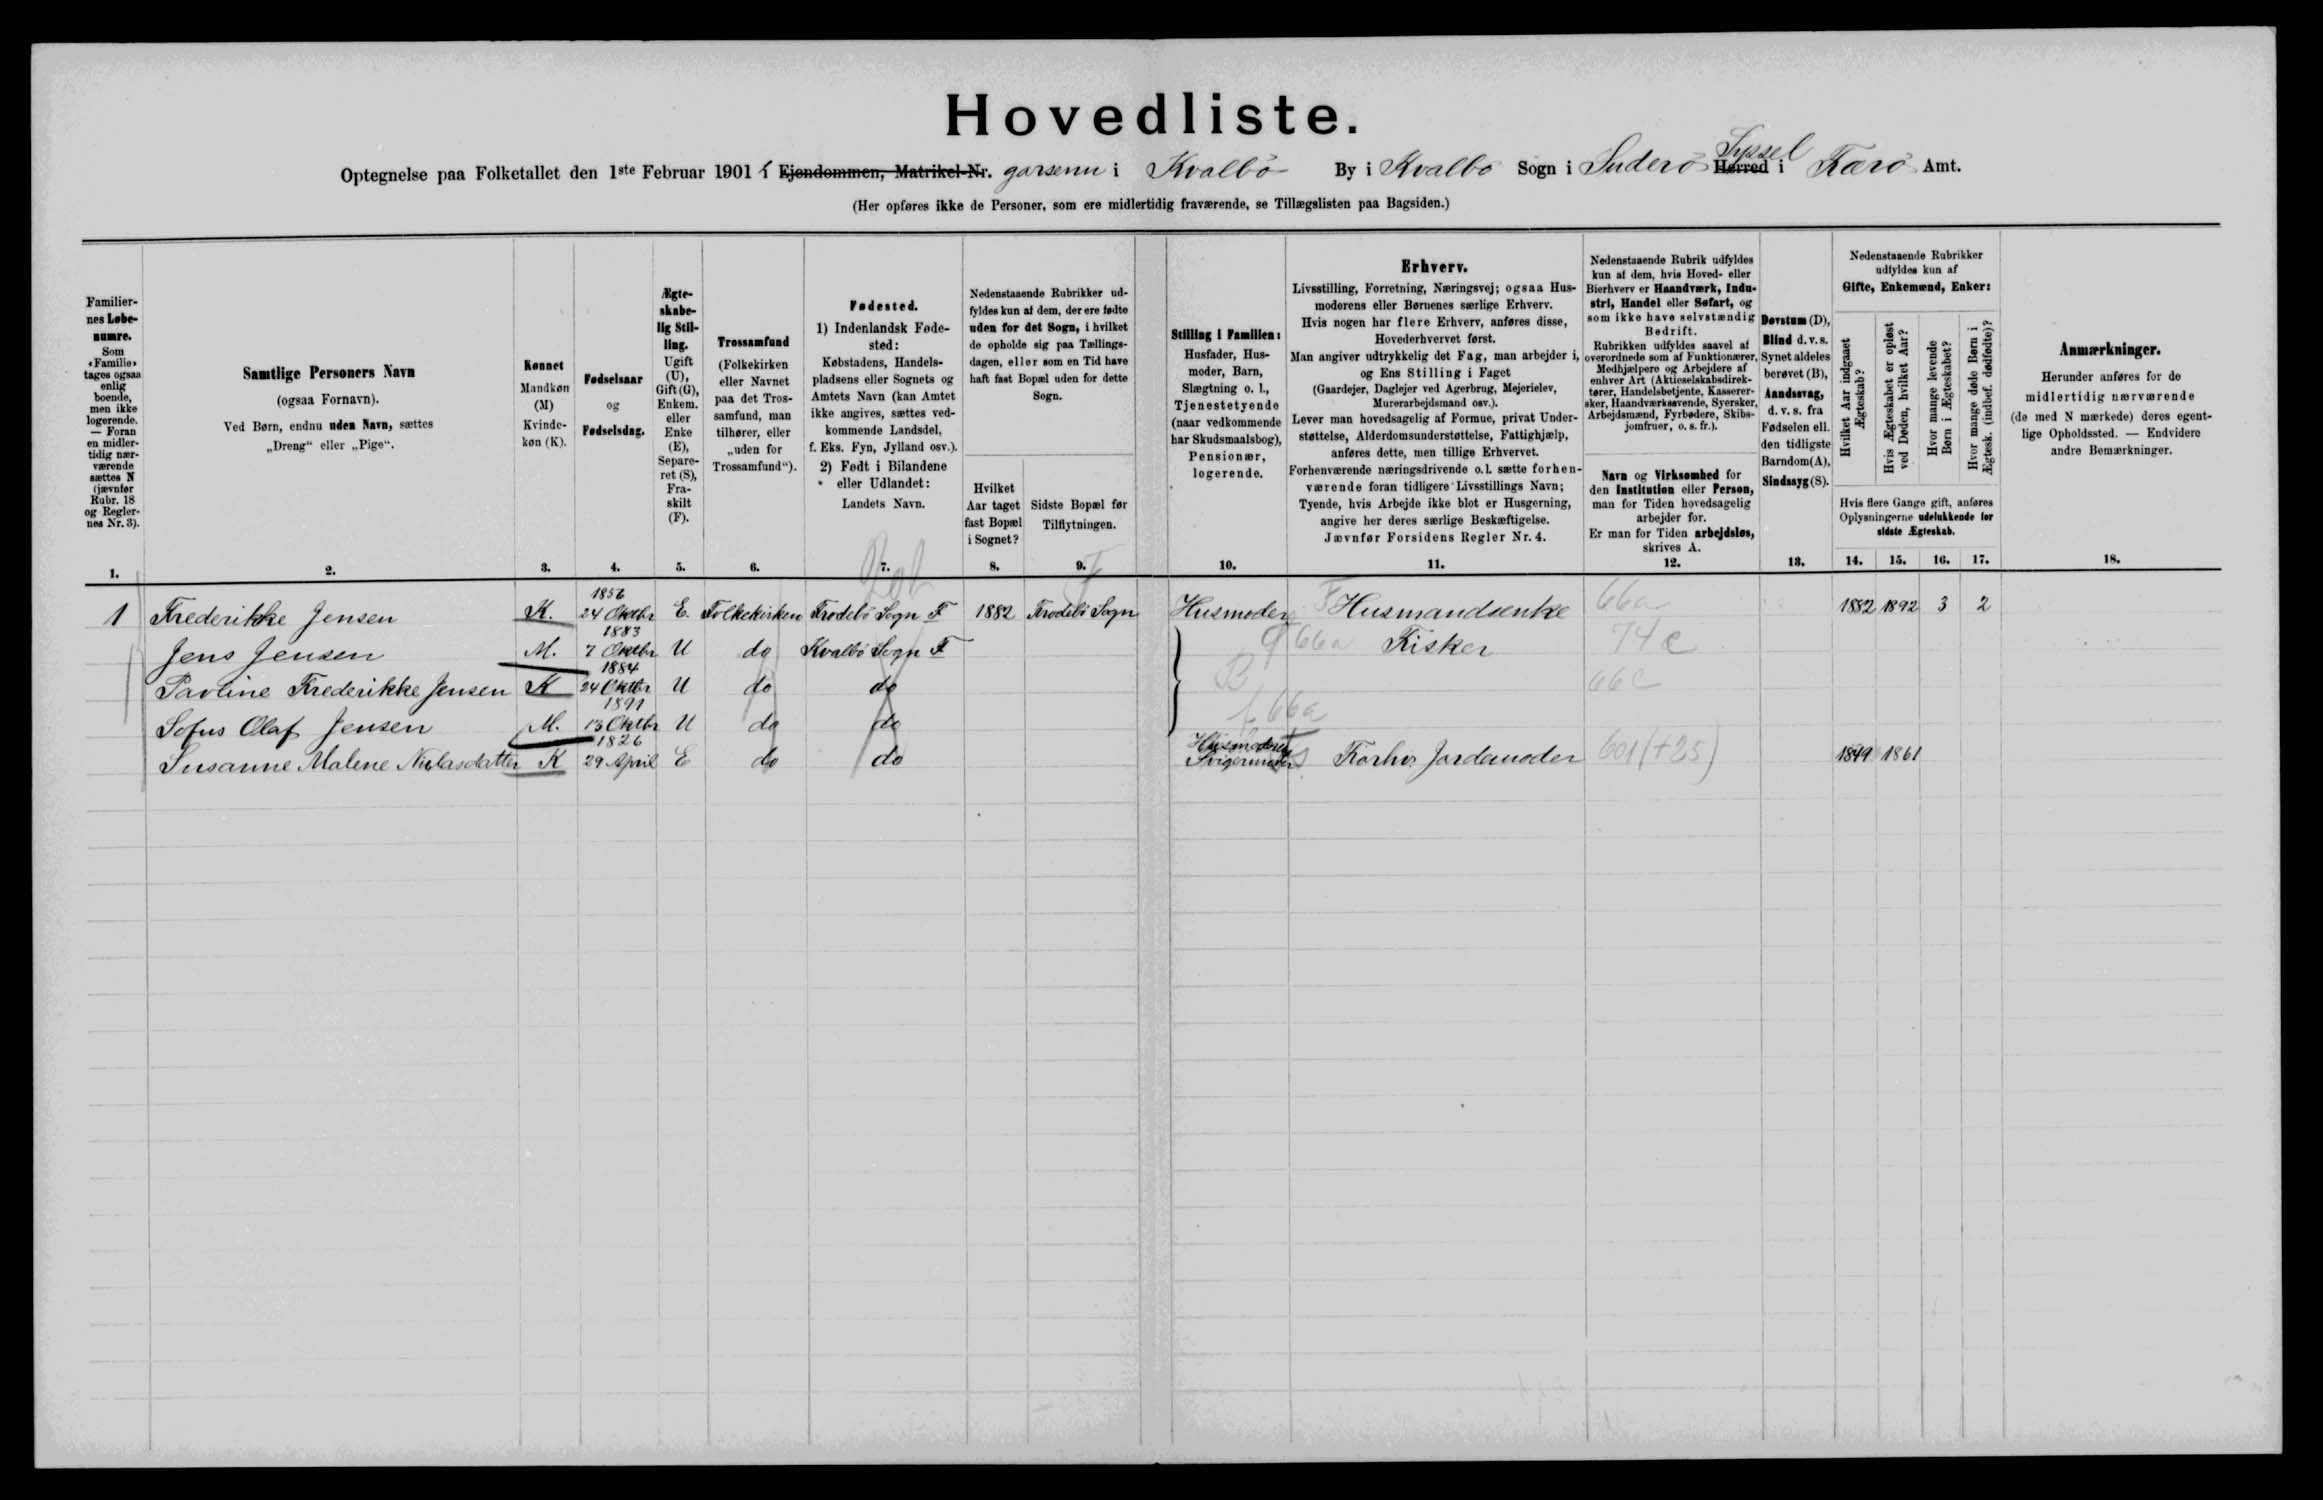 Hovedliste.
Optegnelse paa Folketallet den 1ste Februar 1901 i Ejendommen, Matrikel-Nr. garsenn i Kvalbö By i Kvalbø Sogn i Suderö Herred Syssel i Færö Amt.
(Her opføres ikke de Personer, som ere midlertidig fraværende, se Tillægslisten paa Bagsiden.)
Familiernes Løbenumre.
Som «Familie» tages ogsaa enlig boende, men ikke logerende. — Foran en midlertidig nærværende sættes N (jævnfør Rubr. 18 og Reglernes Nr. 3).
Samtlige Personers Navn
(ogsaa Fornavn).
Ved Børn, endnu uden Navn, sættes
„Dreng“ eller „Pige“.
Kønnet
Mandkøn
(M)
Kvindekøn (K).
Fødselsaar
og
Fødselsdag.
Ægteskabelig Stilling.
Ugift (U), Gift (G), Enkem. eller Enke (E), Separeret (S), Fraskilt (F).
Trossamfund
(Folkekirken eller Navnet paa det Trossamfund, man tilhører, eller „uden for Trossamfund“).
Fødested.
1) Indenlandsk Fødested:
Købstadens, Handelspladsens eller Sognets og Amtets Navn (kan Amtet ikke angives, sættes vedkommende Landsdel, f. Eks. Fyn, Jylland osv.).
2) Født i Bilandene eller Udlandet:
Landets Navn.
Nedenstaaende Rubrikker udfyldes kun af dem, der ere fødte uden for det Sogn, i hvilket de opholde sig paa Tællingsdagen, eller som en Tid have haft fast Bopæl uden for dette Sogn.
Hvilket Aar taget fast Bopæl i Sognet?
Sidste Bopæl før Tilflytningen.
Stilling i Familien:
Husfader, Husmoder, Barn, Slægtning o. l., Tjenestetyende (naar vedkommende har Skudsmaalsbog), Pensionær, logerende.
Erhverv.
Livsstilling, Forretning, Næringsvej; ogsaa Husmoderens eller Børnenes særlige Erhverv.
Hvis nogen har flere Erhverv, anføres disse, Hovederhvervet først.
Man angiver udtrykkelig det Fag, man arbejder i, og Ens Stilling i Faget
(Gaardejer, Daglejer ved Agerbrug, Mejerielev, Murerarbejdsmand osv.).
Lever man hovedsagelig af Formue, privat Understøttelse, Alderdomsunderstøttelse, Fattighjælp, anføres dette, men tillige Erhvervet.
Forhenværende næringsdrivende o. l. sætte forhenværende foran tidligere Livsstillings Navn; Tyende, hvis Arbejde ikke blot er Husgerning, angive her deres særlige Beskæftigelse.
Jævnfør Forsidens Regler Nr. 4.
Nedenstaaende Rubrik udfyldes kun af dem, hvis Hoved- eller Bierhverv er Haandværk, Industri, Handel eller Søfart, og som ikke have selvstændig Bedrift.
Rubrikken udfyldes saavel af overordnede som af Funktionærer, Medhjælpere og Arbejdere af enhver Art (Aktieselskabsdirektører, Handelsbetjente, Kasserersker, Haandværkssvende, Syersker, Arbejdsmænd, Fyrbødere, Skibsjomfruer, o. s. fr.).
Navn og Virksomhed for den Institution eller Person, man for Tiden hovedsagelig arbejder for.
Er man for Tiden arbejdsløs, skrives A.
Døvstum (D),
Blind d. v. s. Synet aldeles berøvet (B),
Aandssvag, d. v. s. fra Fødselen ell. den tidligste Barndom (A),
Sindssyg (S).
Nedenstaaende Rubrikker udfyldes kun af
Gifte, Enkemænd, Enker:
Hvilket Aar indgaaet Ægteskab?
Hvis Ægteskabet er opløst ved Døden, hvilket Aar?
Hvor mange levende Børn i Ægteskabet?
Hvor mange døde Børn i Ægtesk. (indbef. dødfødte)?
Hvis flere Gange gift, anføres Oplysningerne udelukkende for sidste Ægteskab.
Anmærkninger.
Herunder anføres for de midlertidig nærværende (de med N mærkede) deres egentlige Opholdssted. — Endvidere andre Bemærkninger.
1. 2. 3. 4. 5. 6. 7. 8. 9. 10. 11. 12. 13. 14. 15. 16. 17. 18.
1 Frederikke Jensen K. 1856 24 Oktbr E. Folkekirken Frodebö Sogn F 1882 Frodebö Sogn Husmoder F Husmandsenke 66a 1882 1892 3 2
Jens Jensen M. 1883 7 Oktbr U do Kvalbö Sogn F 66a Fisker 74c
Pavline Frederikke Jensen K 1884 24 Oktbr U do do B 66c
Sofus Olaf Jensen M. 1891 13 Oktbr U do do f 66a
Susanne Malene Niclasdatter K 1826 29 April E do do Husmoders Svigermoder Forhv. Jordemoder 601 (+25) 1849 1861